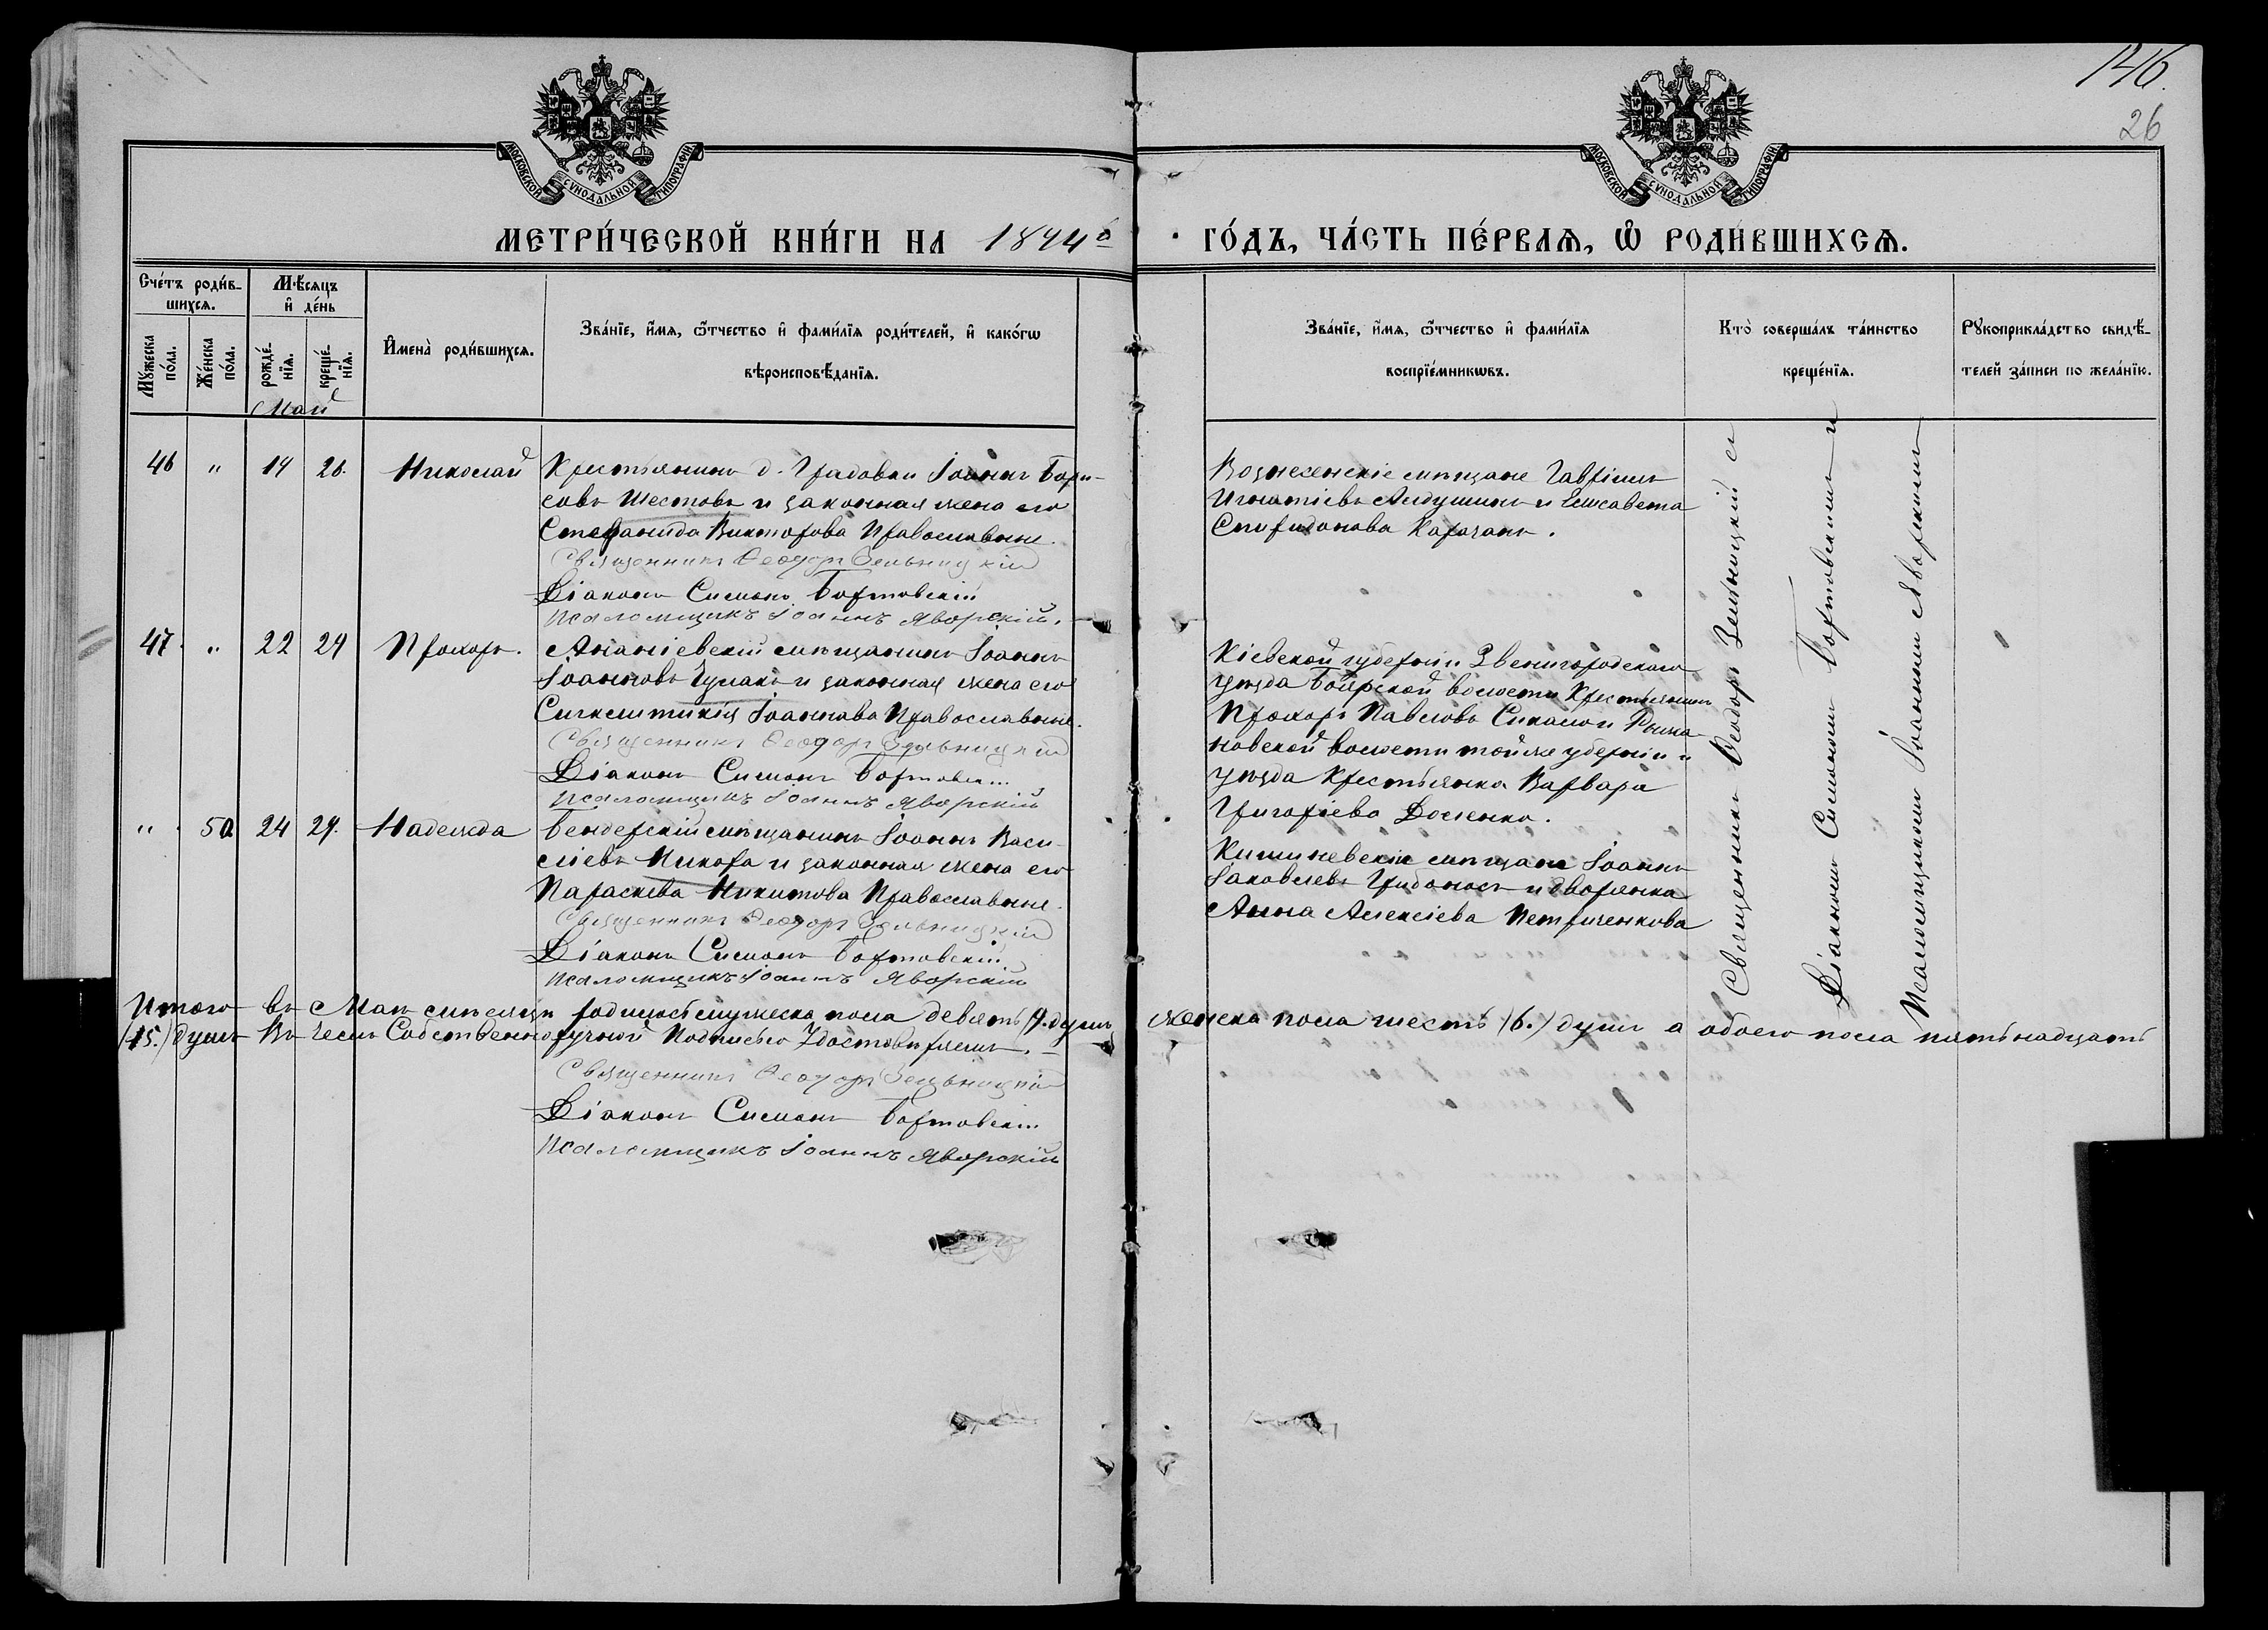 146.
26
МОСКОВСКОЙ СѴНОДАЛЬНОЙ ТИПОГРАФІИ
МОСКОВСКОЙ СѴНОДАЛЬНОЙ ТИПОГРАФІИ
МЕТРИ́ЧЕСКОЙ КНИ́ГИ НА 1894 г҃о́дъ, ЧА́СТЬ ПЕ́РВАѦ, Ѽ РОДИ́ВШИХСѦ.
Сче́тъ роди́в-
шихсѧ.
Мѣ́сѧцъ
и҆ де́нь
Мꙋ́жеска по́ла.
Же́нска по́ла.
рожде́-
нїѧ.
креще́-
нїѧ.
И҆мена̀ роди́вшихсѧ.
Зва́нїе, и҆́мѧ, ѻ҆́тчество и҆ фами́лїѧ роди́телей, и҆ како́гѡ
вѣроисповѣ́данїѧ.
Зва́нїе, и҆́мѧ, ѻ҆́тчество и҆ фами́лїѧ
воспрїе́мникѡвъ.
Кто̀ соверша́лъ та́инство
креще́нїѧ.
Рꙋкоприкла́дство свидѣ́-
телей за́писи по жела́нїю.
Май
46 " 14 26. Николай
Крестьянинъ д. Градовки Іоаннъ Бори-
совъ Шестовъ и законная жена его
Стефанида Викторова Православные.
Священникъ Ѳеодоръ Зельницкій
Діаконъ Симонъ Бортовскій
Псаломщикъ Іоаннъ Яворскій.
Вознесенскіе мѣщане Гавріилъ
Игнатіевъ и Елисавета
Спиридонова Карачанъ.
47. " 22 24 Прохоръ.
Ананіевскій мѣщанинъ Іоаннъ
Іоанновъ Чумакъ и законная жена его
Сигклитикія Іоаннова Православные.
Священникъ Ѳеодоръ Зельницкій
Діаконъ Симонъ Бортовскій
Псаломщикъ Іоаннъ Яворскій
Кіевской губерніи Звенигородскаго
уѣзда Боярской волости Крестьянинъ
Прохоръ Павловъ и
новской волости тойже губерніи и
уѣзда Крестьянка Варвара
Григоріева Доценко.
" 50 24 29. Надежда
Бендерскій мѣщанинъ Іоаннъ Васи-
ліевъ и законная жена его
Параскева Никитова Православные.
Священникъ Ѳеодоръ Зельницкій
Діаконъ Симонъ Бортовскій
Псаломщикъ Іоаннъ Яворскій
Кишиневскіе мѣщане Іоаннъ
Іаковлевъ Грибоносъ и дворянка
Анна Алексіева Петриченкова
Священникъ Ѳеодоръ Зельницкій съ
Діакономъ Симономъ Бортовскимъ и
Псаломщикомъ Іоанномъ Яворскимъ
Итого въ Маѣ мѣсяцѣ родилось мужеска пола девять (9.) душъ женска пола шесть (6.) душъ а обоего пола пятьнадцать
(15.) душъ Въ чемъ Собственноручной Подписью Удостовѣряемъ.
Священникъ Ѳеодоръ Зельницкій
Діаконъ Симонъ Бортовскій
Псаломщикъ Іоаннъ Яворскій